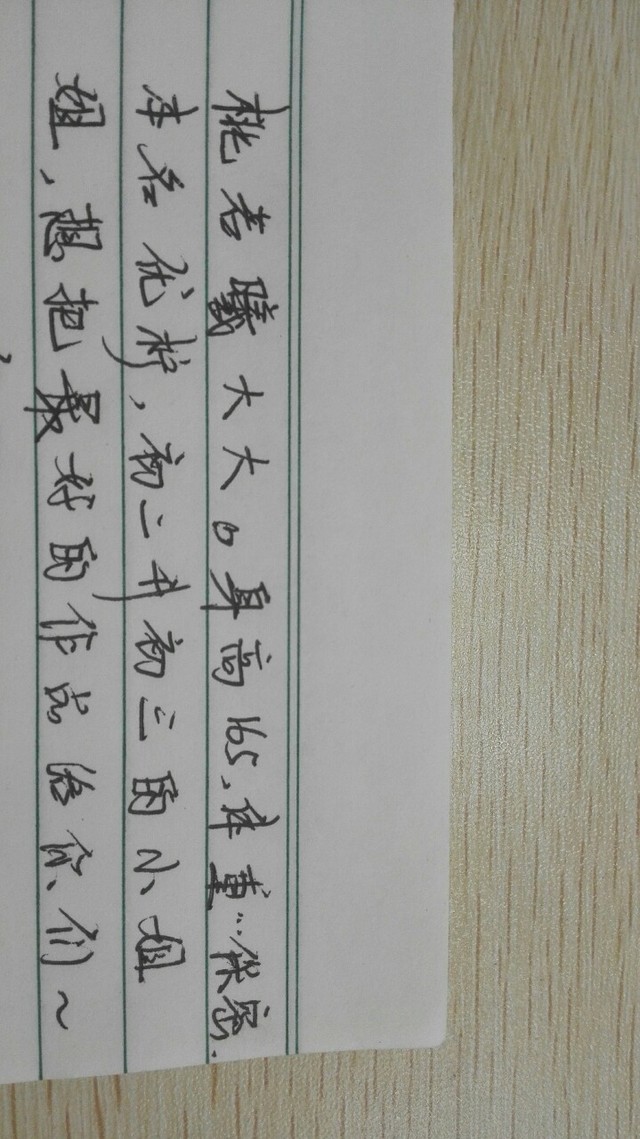 桃者曦大大。身高165,体重…保密.
本名优柠,初二升初三的小姐
姐,想把最好的作品给你们~